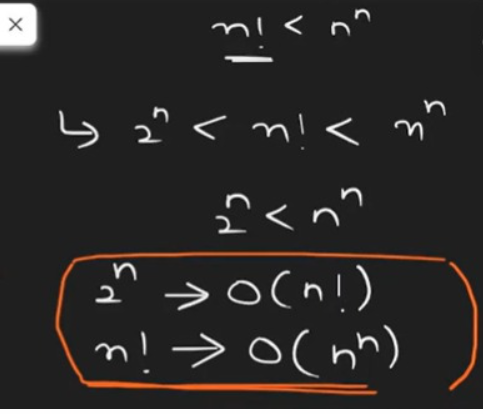 n! < nⁿ
↳ 2ⁿ < n! < nⁿ
2ⁿ < nⁿ
2ⁿ → O(n!)
n! → O(nⁿ)